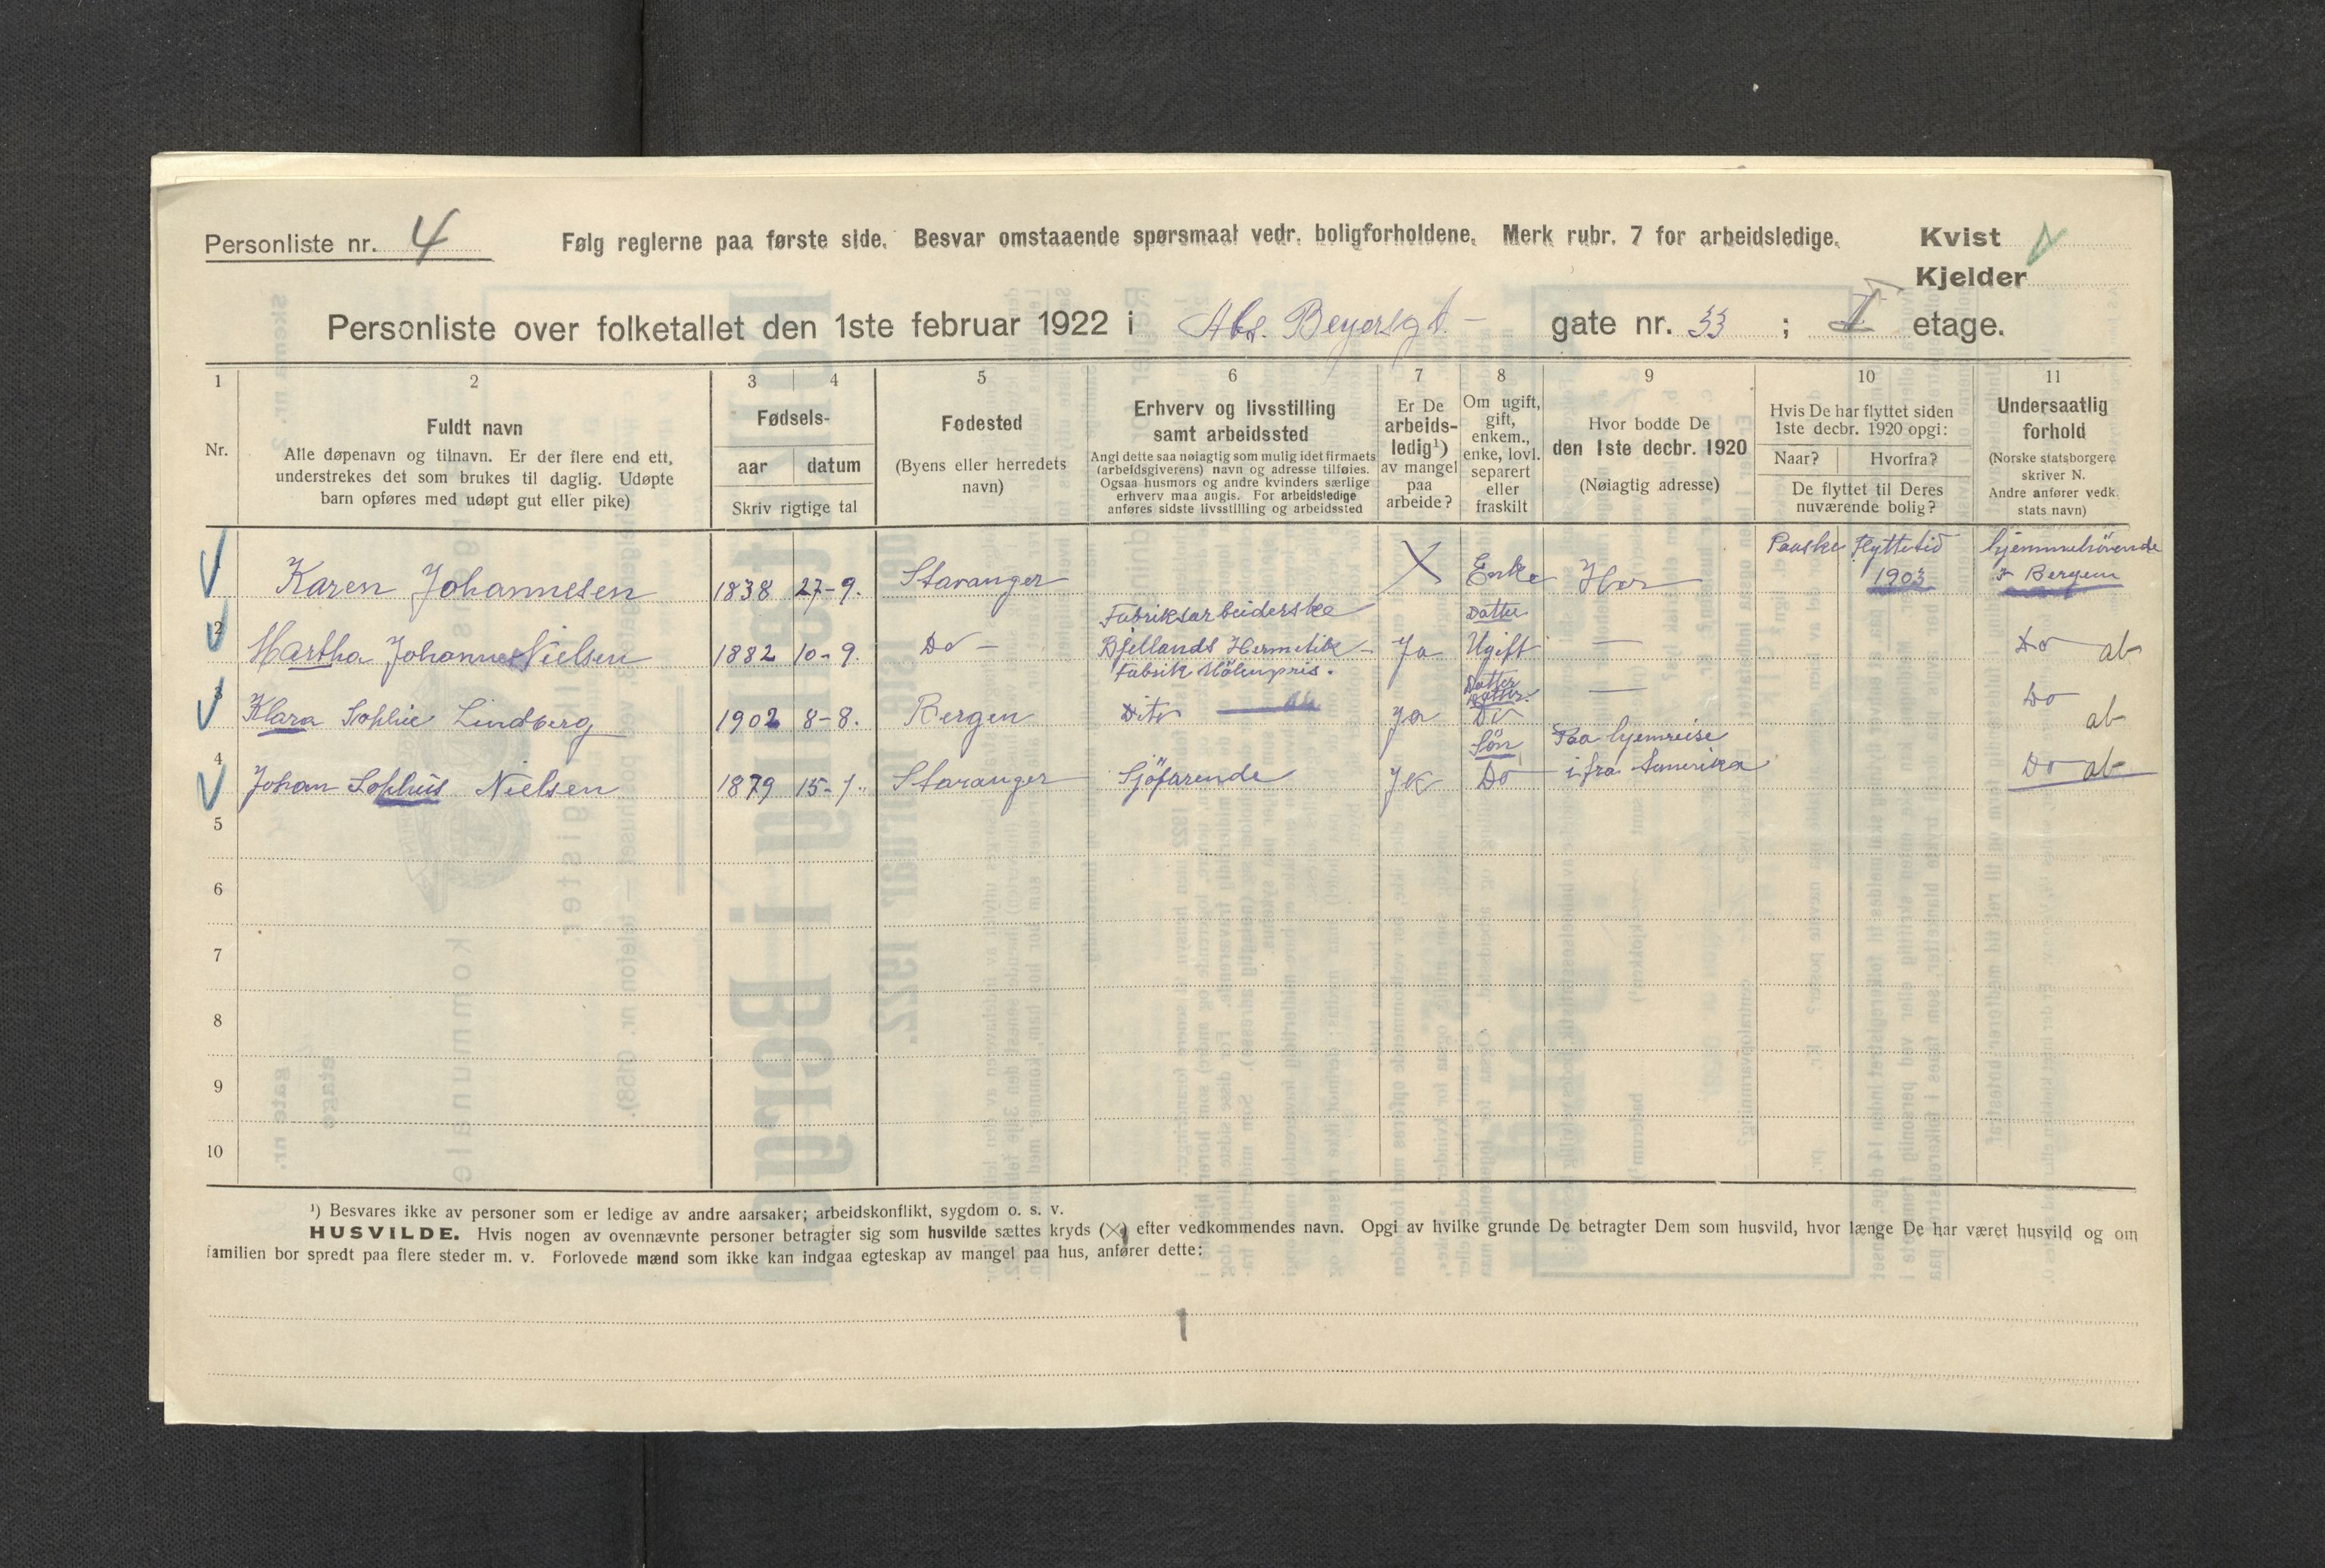 Personliste nr. 4
Følg reglerne paa første side. Besvar omstaaende spørsmaal vedr. boligforholdene. Merk rubr. 7 for arbeidsledige.
Kvist
Kjelder
Personliste over folketallet den 1ste februar 1922 i Abs. Beyersgt. gate nr. 33 ; I etage.
1 2 3 4 5 6 7 8 9 10 11
Nr.
Fuldt navn
Alle døpenavn og tilnavn. Er der flere end ett,
understrekes det som brukes til daglig. Udøpte
barn opføres med udøpt gut eller pike)
Fødsels-
aar datum
Skriv rigtige tal
Fødested
(Byens eller herredets
navn)
Erhverv og livsstilling
samt arbeidssted
Angi dette saa nøiagtig som mulig idet firmaets
(arbeidsgiverens) navn og adresse tilføies.
Ogsaa husmors og andre kvinders særlige
erhverv maa angis. For arbeidsledige
anføres sidste livsstilling og arbeidssted
Er De
arbeids-
ledig¹)
av mangel
paa
arbeide?
Om ugift,
gift,
enkem.,
enke, lovl.
separert
eller
fraskilt
Hvor bodde De
den 1ste decbr. 1920
(Nøiagtig adresse)
Hvis De har flyttet siden
1ste decbr. 1920 opgi:
Naar? Hvorfra?
De flyttet til Deres
nuværende bolig?
Undersaatlig
forhold
(Norske statsborgere
skriver N.
Andre anfører vedk.
stats navn)
Karen Johannesen 1838 27-9. Stavanger X Enke Her Paaske Flyttetid 1903 hjemmehörende I Bergen
2 Martha Johanne Nielsen 1882 10-9. Do - Fabriksarbeiderske Bjellands Hermetik- Fabrik Möhenpris. Ja Datter Ugift — Do ab
3 Klara Sophie Lindberg 1902 8-8. Bergen Dito Ja Datter Datter Do — Do ab
4 Johan Sophus Nielsen 1879 15-1. Stavanger Sjöfarende Sön Do Paa hjemreise ifra Amerika Do ab
5
6
7
8
9
10
¹) Besvares ikke av personer som er ledige av andre aarsaker; arbeidskonflikt, sygdom o. s. v.
HUSVILDE. Hvis nogen av ovennævnte personer betragter sig som husvilde sættes kryds (X) efter vedkommendes navn. Opgi av hvilke grunde De betragter Dem som husvild, hvor længe De har været husvild og om
familien bor spredt paa flere steder m. v. Forlovede mænd som ikke kan indgaa egteskap av mangel paa hus, anfører dette:
1